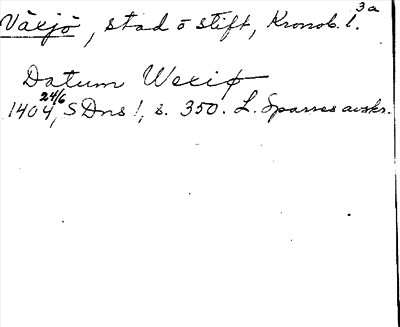 Växjö, stad o stift, Kronob. l. 3a
Datum Wexiø
1404 24/6, SDns 1, s. 350. L. Sparres avskr.